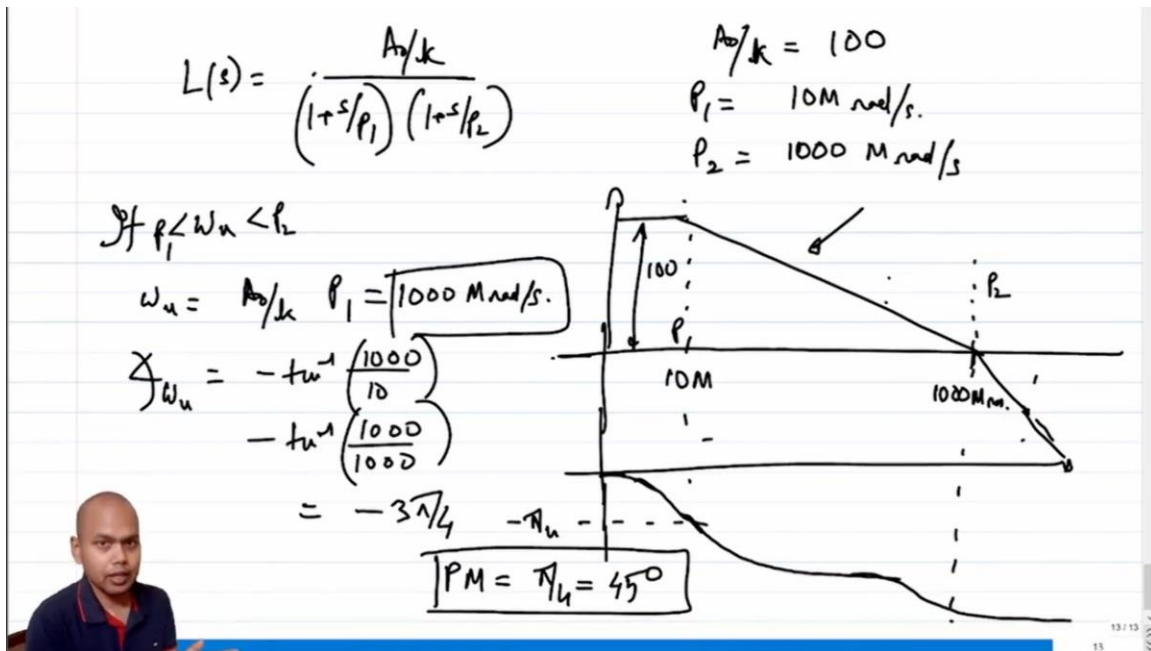 L(s) = A₀/k / (1+s/p₁) (1+s/p₂)
A₀/k = 100
P₁ = 10M rad/s.
P₂ = 1000 M rad/s
If P₁ < ωu < P₂
ωu = A₀/k P₁ = 1000 M rad/s.
∡ωu = - tan⁻¹ (1000/10)
- tan⁻¹ (1000/1000)
= - 3π/4
PM = π/4 = 45°
100
P₁
10M
P₂
1000M
-π/4
13 / 13
13